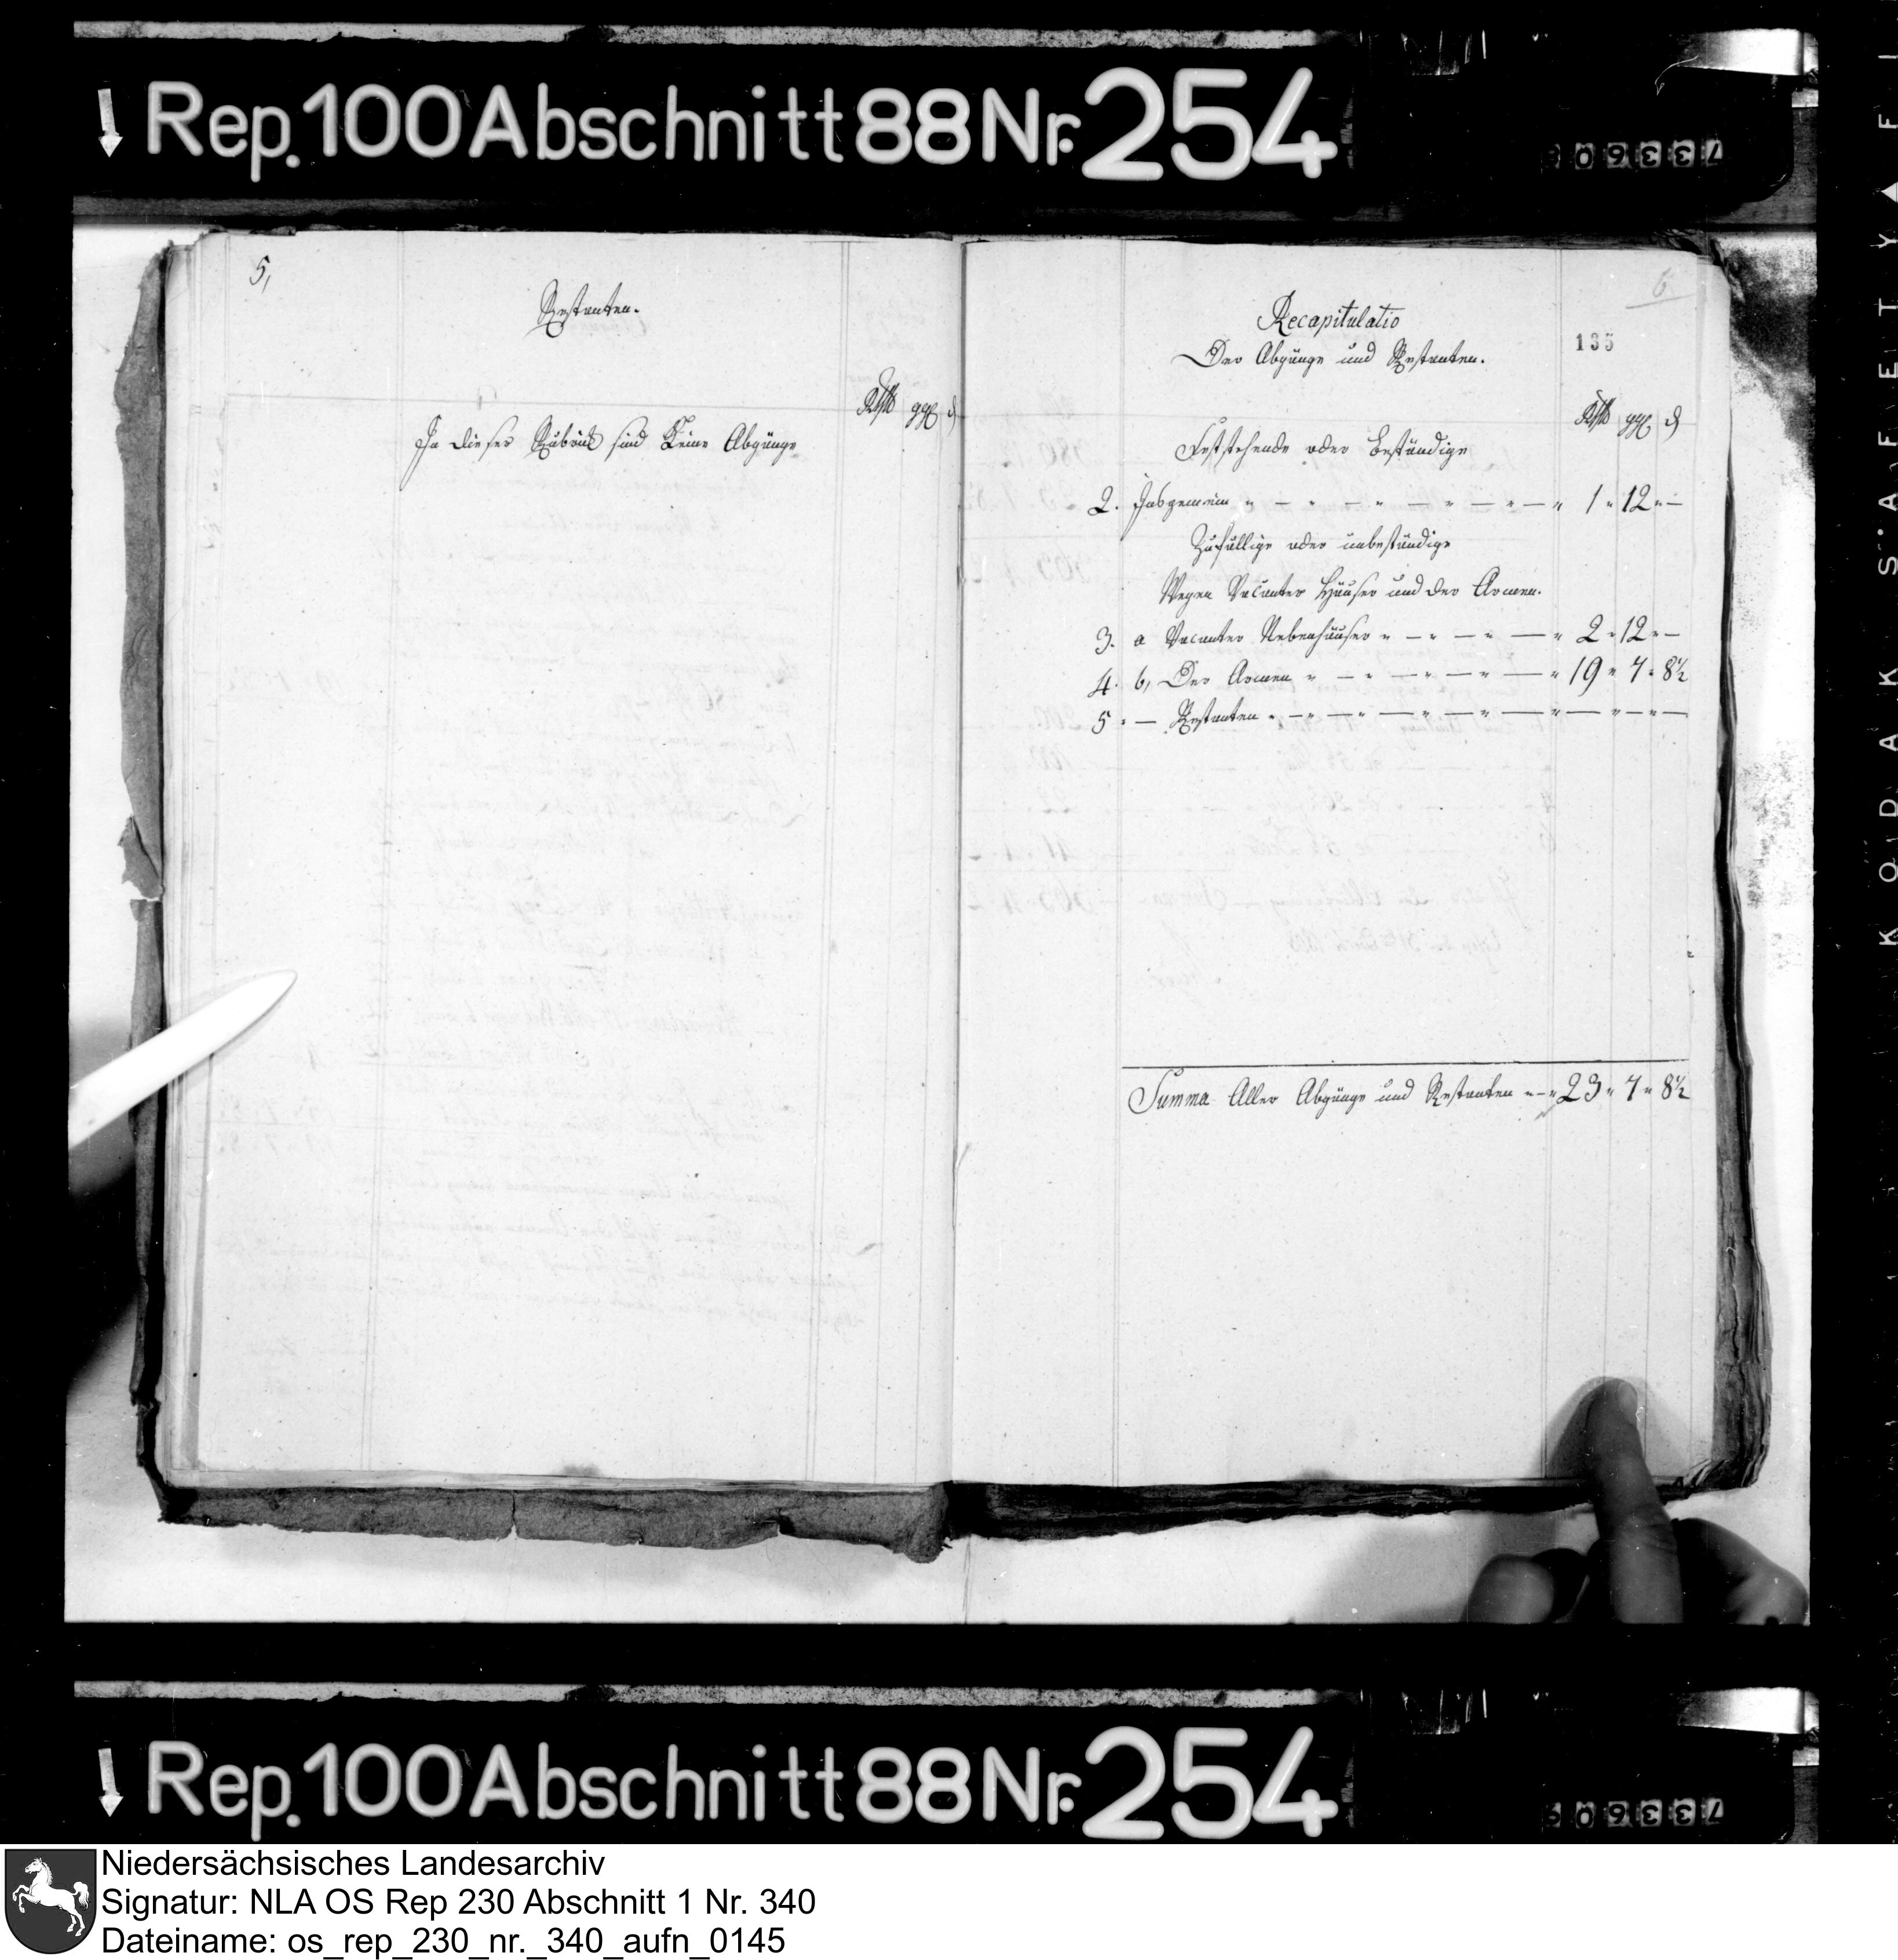 Rep. 100 Abschnitt 88 Nr. 254
5,
Restanten.
Rthlr ggl d
In dieser Rubrick sind Keine Abgänge
6
135
Recapitulatio
Der Abgänge und Restanten.
Rthlr ggl d
Feststehende oder beständige
2. Insgemein " — " — " — " — " — " 1 " 12 " —
Zufällige oder unbeständige
Wegen Vacanter Häuser und der Armen.
3. a Vacanter Nebenhäuser " — " — " — " 2 " 12 " —
4. b, Der Armen " — " — " — " — " 19 " 7 " 8½
5 " — Restanten " — " — " — " — " — " — " — " —
Summa Aller Abgänge und Restanten " — " 23 " 7 " 8½
KODAK SAFETY
Rep. 100 Abschnitt 88 Nr. 254
Niedersächsisches Landesarchiv
Signatur: NLA OS Rep 230 Abschnitt 1 Nr. 340
Dateiname: os_rep_230_nr._340_aufn_0145